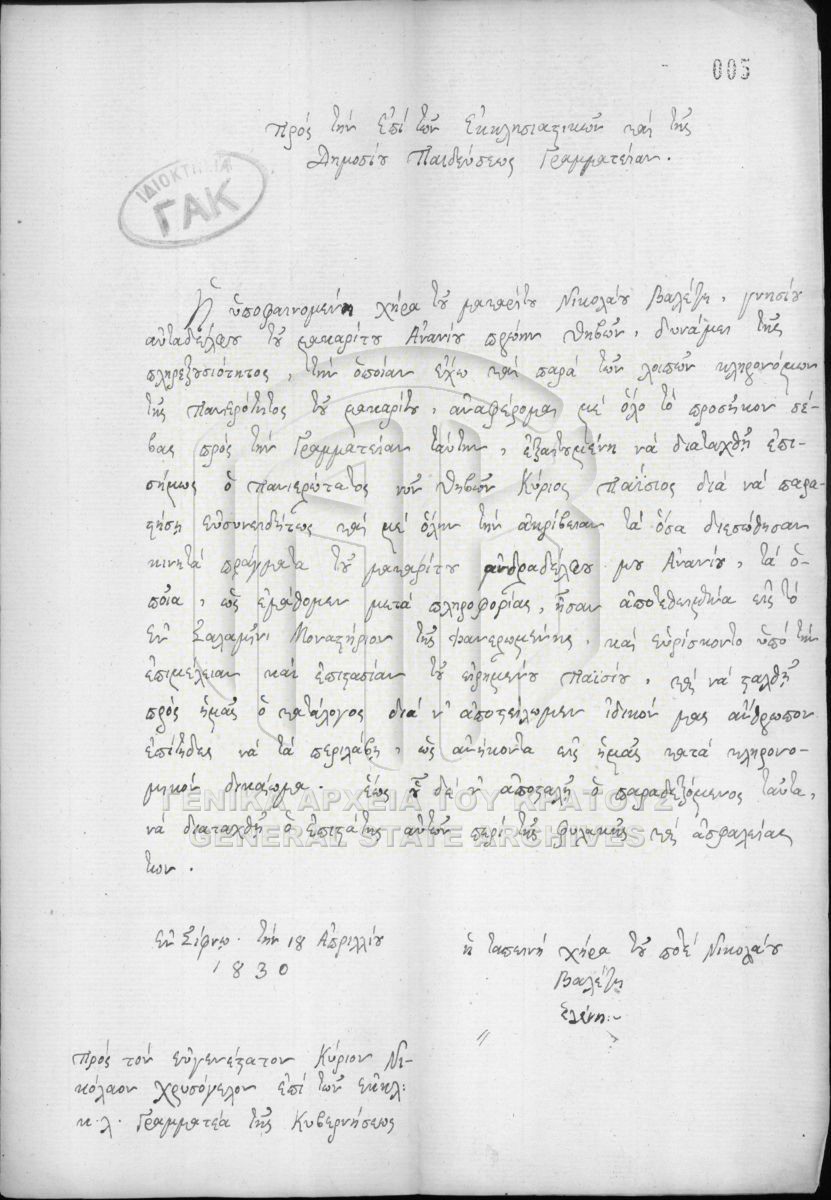 005
Πρός τήν Ἐπί τῶν Ἐκκλησιαστικῶν καί τῆς
Δημοσίου Παιδεύσεως Γραμματείαν.
ΙΔΙΟΚΤΗΣΙΑ
ΓΑΚ
Ἡ ὑποφαινομένη χήρα τοῦ μακαρίτου Νικολάου Βαλέτζη, γνησίου
αὐταδέλφου τοῦ μακαρίτου Ἀνανίου πρώην Θηβῶν, δυνάμει τῆς
πληρεξουσιότητος, τήν ὁποίαν ἔχω καί παρά τῶν λοιπῶν κληρονόμων
τῆς Πανιερότητος τοῦ μακαρίτου, ἀναφέρομαι μέ ὅλο τό προσῆκον σέ-
βας πρός τήν Γραμματείαν ταύτην, ἐξαιτουμένη νά διαταχθῇ ἐπι-
σήμως ὁ πανιερώτατος νῦν Θηβῶν Κύριος Παΐσιος διά νά παρα-
στήσῃ εὐσυνειδήτως καί μέ ὅλην τήν ἀκρίβειαν τά ὅσα διεσώθησαν
κινητά πράγματα τοῦ μακαρίτου ἀνδραδέλφου μου Ἀνανίου, τά ὁ-
ποῖα, ὡς ἐμάθομεν μετά πληροφορίας, ἦσαν ἀποτεθειμένα εἰς τό
ἐν Σαλαμῖνι Μοναστήριον τῆς Φανερωμένης, καί εὑρίσκοντο ὑπό τήν
ἐπιμέλειαν καί ἐπιστασίαν τοῦ εἰρημένου Παϊσίου, καί νά σταλθῇ
πρός ἡμᾶς ὁ κατάλογος διά ν' ἀποστείλωμεν ἰδικόν μας ἄνθρωπον
ἐπίτηδες νά τά περιλάβῃ, ὡς ἀνήκοντα εἰς ἡμᾶς κατά κληρονο-
μικόν δικαίωμα. ἕως οὗ δέ ν' ἀποσταλῇ ὁ παραδεξόμενος ταῦτα,
νά διαταχθῇ ὁ ἐπιστάτης αὐτῶν περί τῆς φυλακῆς καί ἀσφαλείας
των.
ΓΕΝΙΚΑ ΑΡΧΕΙΑ ΤΟΥ ΚΡΑΤΟΥΣ
GENERAL STATE ARCHIVES
Ἐν Σίφνῳ. τήν 18 Ἀπριλλίου
1830
ἡ ταπεινή χήρα τοῦ ποτέ Νικολάου
Βαλέτζη
Ἑλένη
Πρός τόν εὐγενέστατον Κύριον Νι-
κόλαον Χρυσόγελον ἐπί τῶν ἐκκλ:
κ.λ. Γραμματέα τῆς Κυβερνήσεως